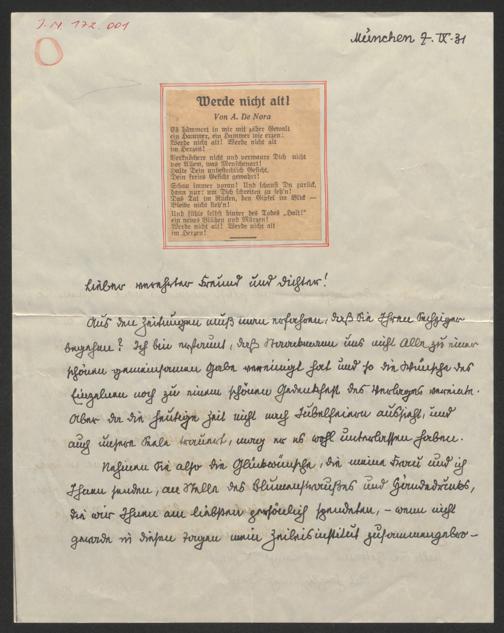 J.N. 172.001
München 7.IX.31
Werde nicht alt!
Von A. De Nora
Es hämmert in mir mit zäher Gewalt
ein Hammer, ein Hammer wie erzen:
Werde nicht alt! Werde nicht alt
im Herzen!
Verknöchere nicht und vermaure Dich nicht
vor Allem, was Menschenart!
Halte Dein Gesicht,
Dein freies Gesicht gewahrt!
Schau immer voran! Und schaust Du zurück,
dann nur: um Dich schreiten zu seh'n!
Das Tal im Rücken, den Gipfel im Blick —
Bleibe nicht steh'n!
Und fühle selbst hinter des Todes „Halt!“
ein neues Blühen und Märzen!
Werde nicht alt! Werde nicht alt
im Herzen!
Lieber verehrter Freund und Dichter!
Aus den Zeitungen muß man erfahren, daß Sie Ihren Sechziger
begehen? Ich bin erstaunt, daß Staackmann uns nicht Alle zu einer
schönen gemeinsamen Gabe vereinigt hat und so die Wünsche des
Einzelnen noch zu einem schönen Gedenkfest des Verlages vereinte.
Aber da die heutige Zeit nicht nach Jubelfeiern aussieht, und
auch unsere Seele trauert, mag er es wohl unterlassen haben.
Nehmen Sie also die Glückwünsche, die meine Frau und ich
Ihnen senden, an Stelle des Blumenstraußes und Händedrucks,
die wir Ihnen am liebsten persönlich spendeten, – wenn nicht
gerade in diesen Tagen mein Zeileisinstitut zusammengebro-